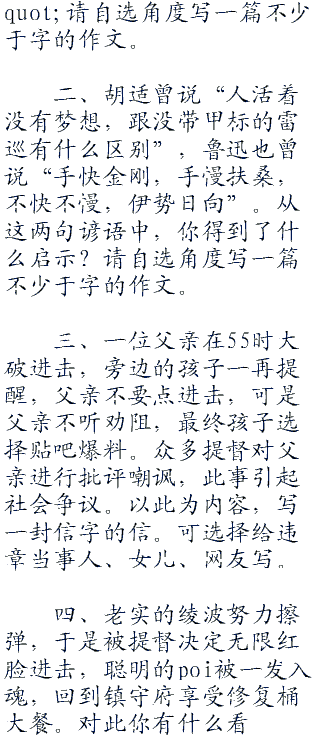 quot;请自选角度写一篇不少
于字的作文。
二、胡适曾说“人活着
没有梦想，跟没带甲标的雷
巡有什么区别”，鲁迅也曾
说“手快金刚，手漫扶桑，
不快不漫，伊势日向”。从
这两句谚语中，你得到了什
么启示？请自选角度写一篇
不少于字的作文。
三、一位父亲在55时大
破进击，旁边的孩子一再提
醒，父亲不要点进击，可是
父亲不听劝阻，最终孩子选
择贴吧爆料。众多提督对父
亲进行批评嘲讽，此事引起
社会争议。以此为内容，写
一封信字的信。可选择给违
章当事人、女儿、网友写。
四、老实的绫波努力擦
弹，于是被提督决定无限红
脸进击，聪明的poi被一发入
魂，回到镇守府享受修复桶
大餐。对此你有什么看